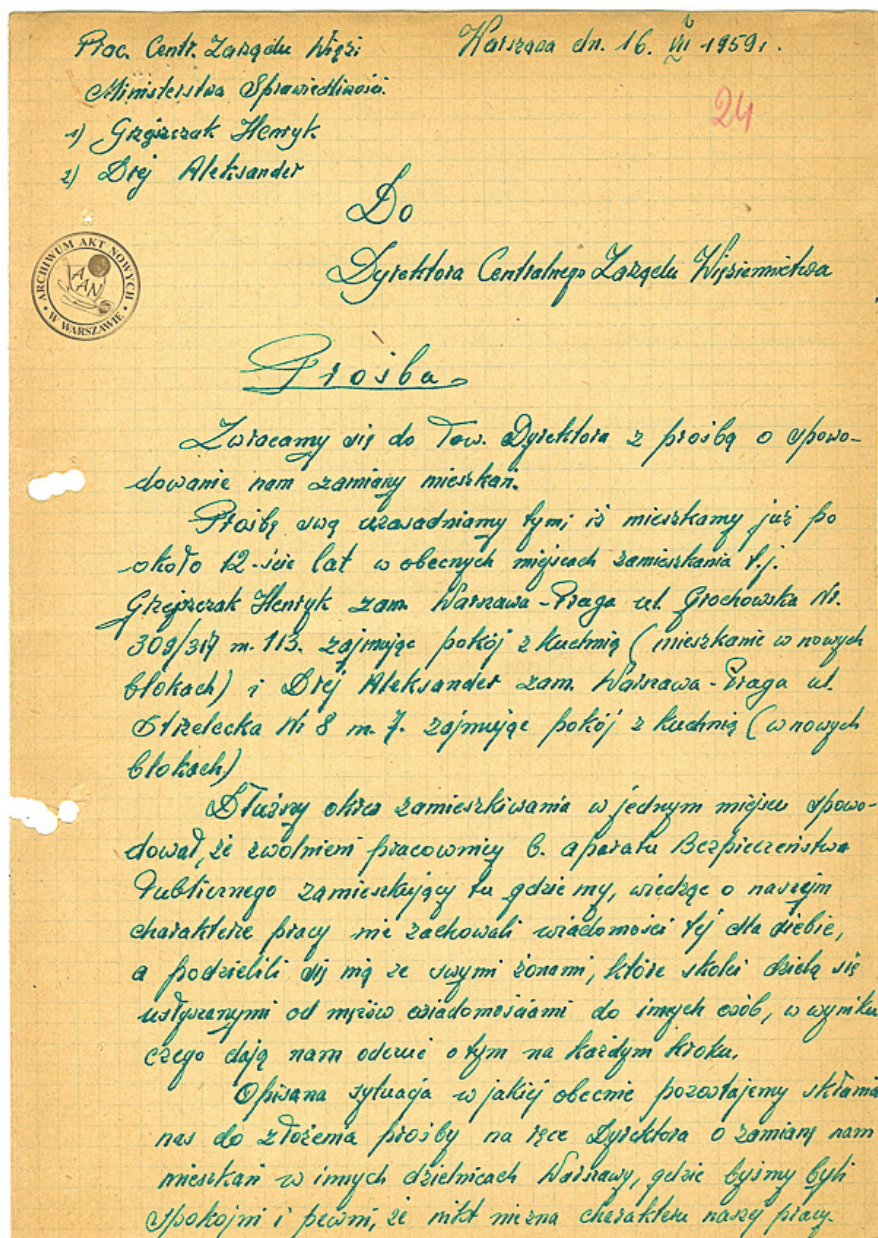 Prac. Centr. Zarządu Więzi. Warszawa dn. 16. VII 1959r.
Ministerstwa Sprawiedliwości.
24
1) Grzejszczak Henryk
2) Drej Aleksander
Do
Dyrektora Centralnego Zarządu Więziennictwa
ARCHIWUM AKT NOWYCH
AAN
W WARSZAWIE
Prośba
Zwracamy się do Tow. Dyrektora z prośbą o spowo-
dowanie nam zamiany mieszkań.
Prośbę swą uzasadniamy tym, iż mieszkamy już po
około 12-ście lat w obecnych miejscach zamieszkania t.j.
Grzejszczak Henryk zam. Warszawa-Praga ul. Grochowska Nr.
309/317 m. 113. zajmując pokój z kuchnią (mieszkanie w nowych
blokach) i Drej Aleksander zam. Warszawa-Praga ul.
Strzelecka Nr 8 m. 7. zajmując pokój z kuchnią (w nowych
blokach)
Dłuższy okres zamieszkiwania w jednym miejscu spowo-
dował, że zwolnieni pracownicy b. aparatu Bezpieczeństwa
Publicznego zamieszkujący tu gdzie my, wiedząc o naszym
charakterze pracy nie zachowali wiadomości tej dla siebie,
a podzielili się nią ze swymi żonami, które skolei dzielą się
usłyszanymi od mężów wiadomościami do innych osób, w wyniku
czego dają nam odczuć o tym na każdym kroku.
Opisana sytuacja w jakiej obecnie pozostajemy skłania
nas do złożenia prośby na ręce Dyrektora o zamianę nam
mieszkań w innych dzielnicach Warszawy, gdzie byśmy byli
spokojni i pewni, że nikt nie zna charakteru naszej pracy.